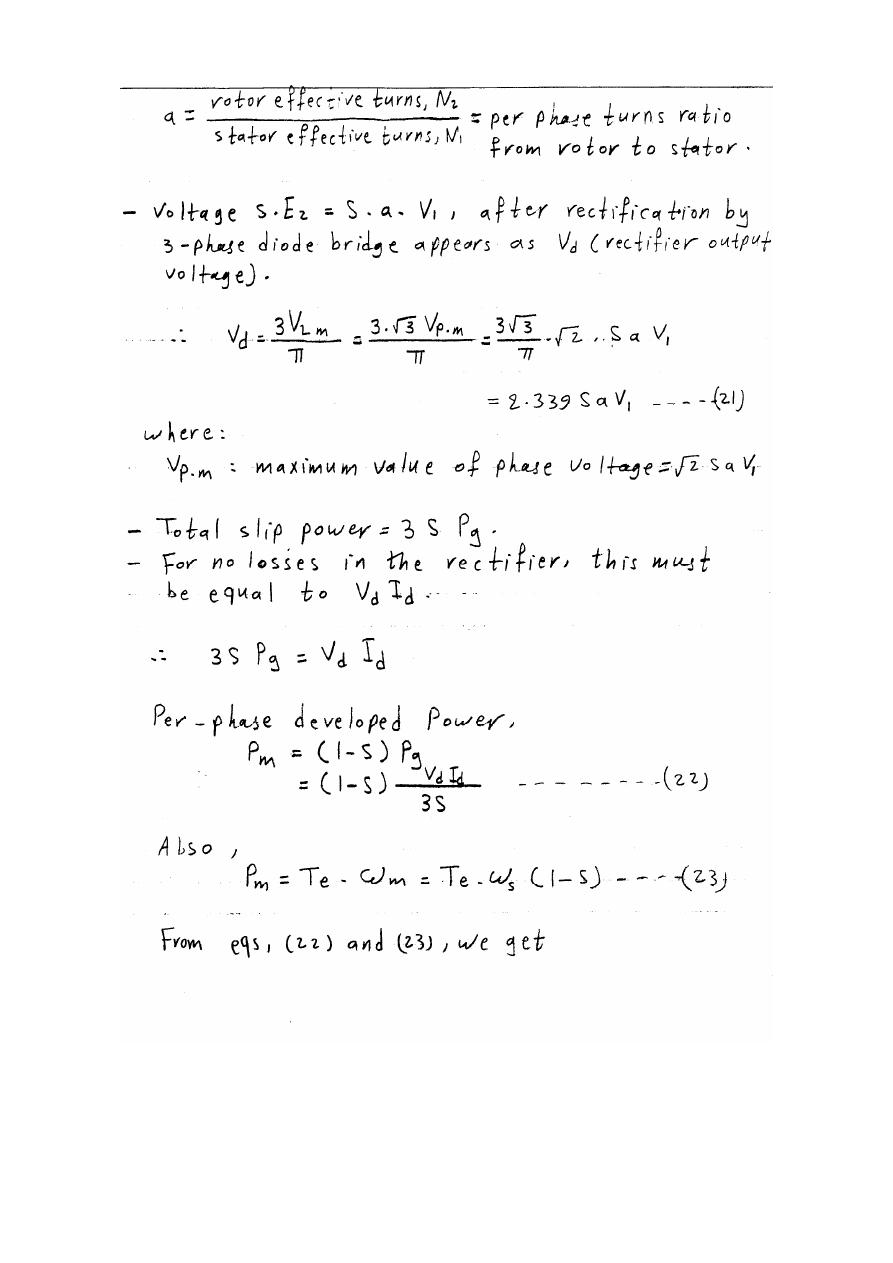 a = rotor effective turns, N₂ / stator effective turns, N₁ = per phase turns ratio
from rotor to stator.
- Voltage S.E₂ = S.a.V₁, after rectification by
3-phase diode bridge appears as Vd (rectifier output
voltage).
∴ Vd = 3VLm / π = 3.√3 Vp.m / π = 3√3 / π .√2 .. S a V₁
= 2.339 S a V₁ ----(21)
where:
Vp.m : maximum value of phase voltage = √2 S a V₁
- Total slip power = 3 S Pg.
- For no losses in the rectifier, this must
be equal to Vd Id
∴ 3S Pg = Vd Id
Per-phase developed Power,
Pm = (1-S) Pg
= (1-S) Vd Id / 3S ---------(22)
Also,
Pm = Te . ωm = Te . ωs (1-S) ----(23)
From eqs, (22) and (23), we get